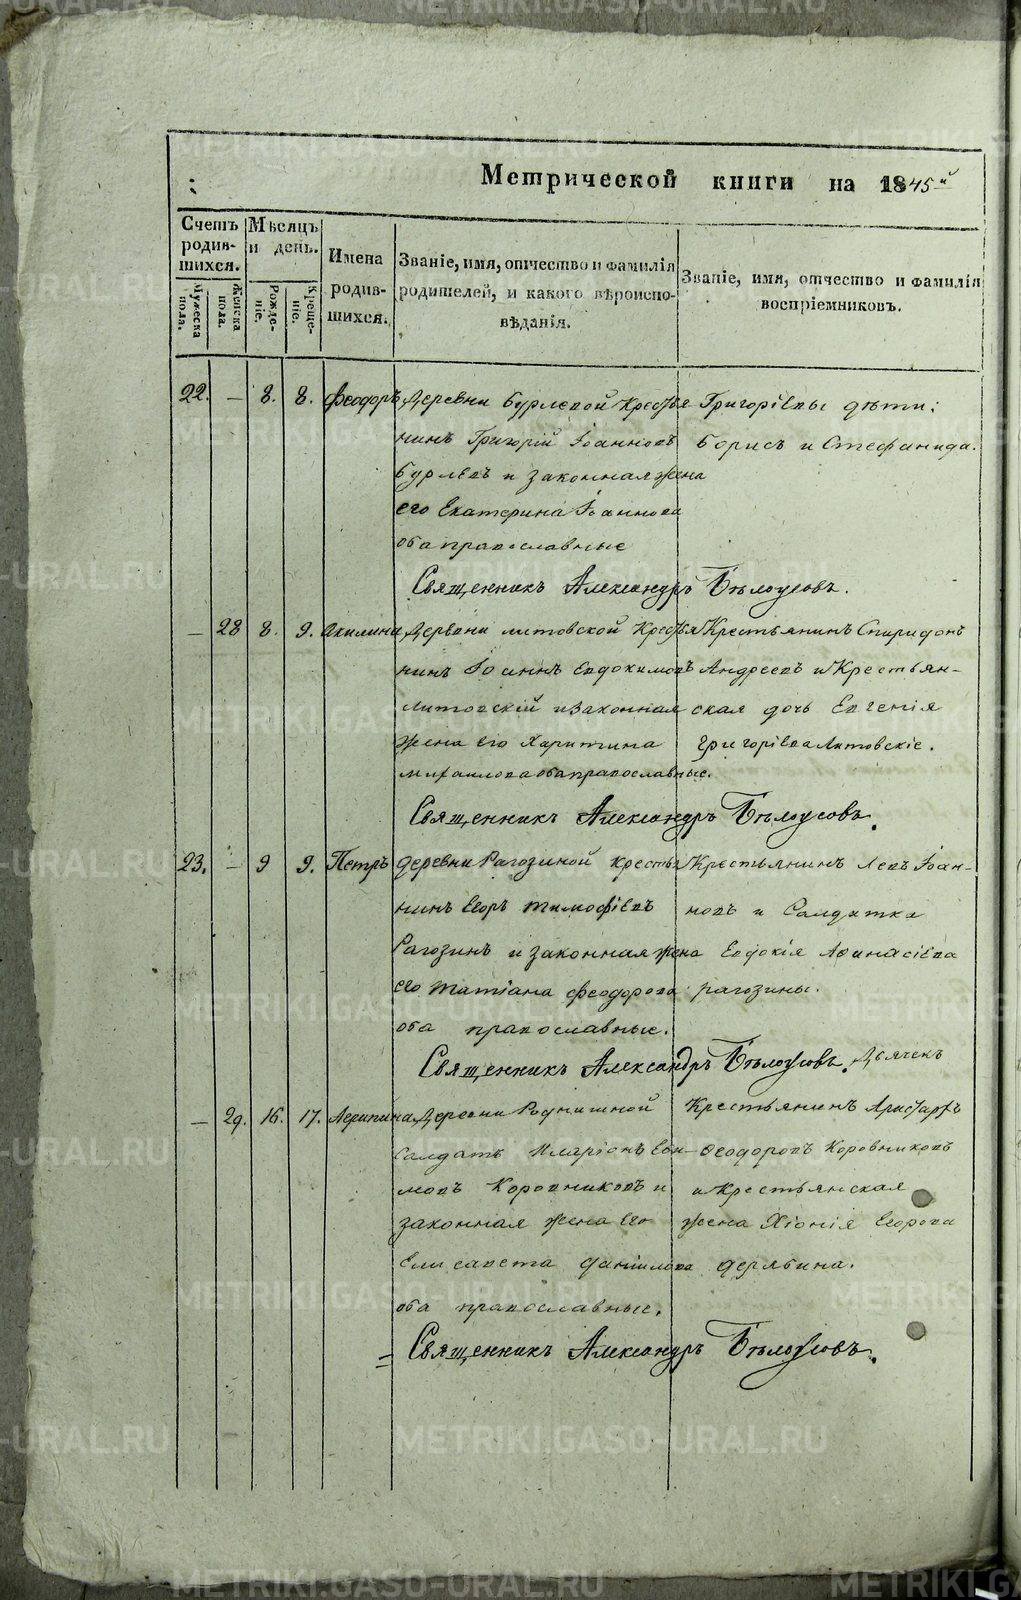 METRIKI.GASO-URAL.RU
Метрической книги на 1845й
Счетъ родившихся.
Мѣсяцъ и день.
Имена родившихся.
Званіе, имя, отчество и фамилія родителей, и какого вѣроисповѣданія.
Званіе, имя, отчество и фамилія воспріемниковъ.
Мужеска пола.
Женска пола.
Рожденіе.
Крещеніе.
22. — 8. 8. Феодоръ Деревни Бурлевой Кресть Григоріевы дѣти:
нинъ Григорій Іоанновъ Борисъ и Стефанида.
Бурлевъ и законная жена
его Екатерина Іоаннова
оба православные
Священникъ Александръ Бѣлоусовъ.
— 28 8. 9. Акилина Деревни Литовской Кресть Крестьянинъ Спиридонъ
нинъ Іоаннъ Евдокимовъ Андреевъ и Крестьян-
Литовскій и законная ская дочь Евгенія
жена его Харитина Григоріева Литовскіе.
Михаилова оба православные.
Священникъ Александръ Бѣлоусовъ.
23. — 9 9. Петръ деревни Рагозиной кресть Крестьянинъ Левъ Іоан-
нинъ Егоръ Тимофіевъ новъ и Салдатка
Рагозинъ и законная жена Евдокія Афинасіева
его Татіана Феодорова рагозины.
оба православные.
Священникъ Александръ Бѣлоусовъ. Дьячекъ
— 29. 16. 17. Агрипина Деревни Роднишной Крестьянинъ Аристархъ
Салдатъ Иларіонъ Ефи- Феодоровъ Коровниковъ
мовъ Коровниковъ и и Крестьянская
законная жена его жена Хіонія Егорова
Елисавета Даниилова дерябина.
оба православные.
Священникъ Александръ Бѣлоусовъ.